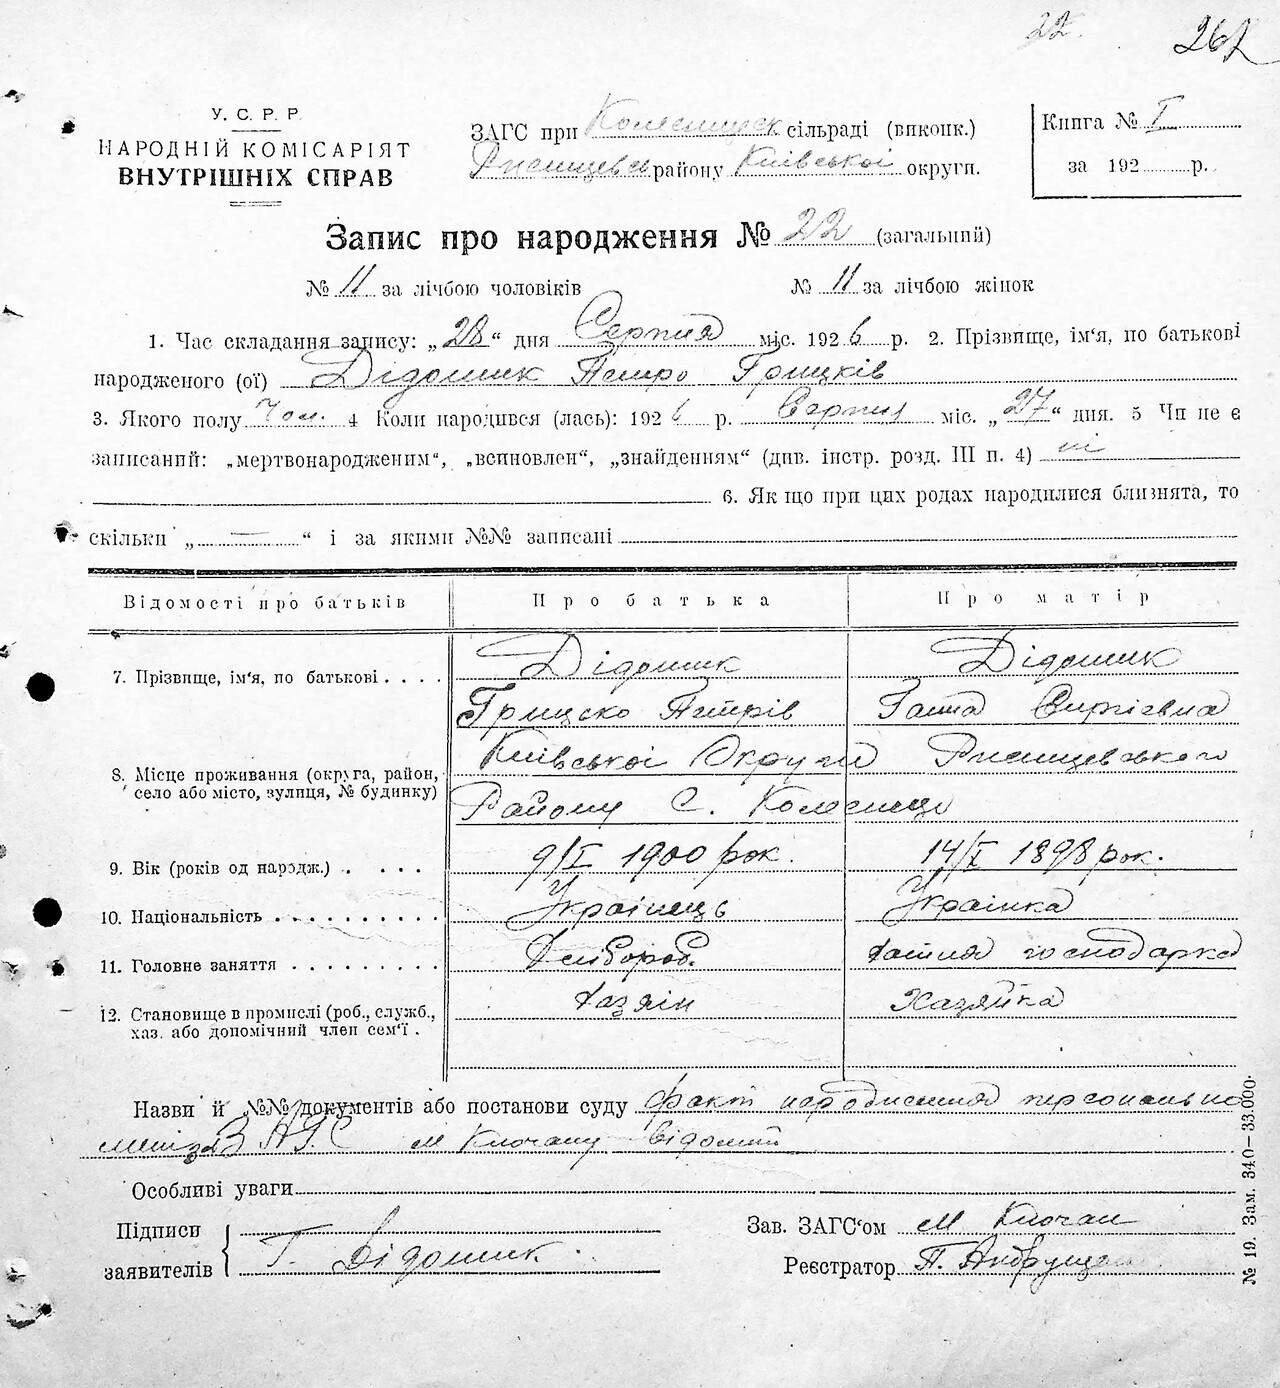 22.
267
У. С. Р. Р.
НАРОДНІЙ КОМІСАРІЯТ
ВНУТРІШНІХ СПРАВ
ЗАГС при Колесищеск сільраді (виконк.)
району Київської округи.
Книга № I
за 192 р.
Запис про народження № 22 (загальний)
№ 11 за лічбою чоловіків № 11 за лічбою жінок
1. Час складання запису: „28“ дня Серпня міс. 1926 р. 2. Прізвище, ім‘я, по батькові
народженого (ої) Дідошик Петро Грицків
3. Якого полу Чол. 4 Коли народився (лась): 1926 р. Серпня міс. „27“ дня. 5 Чи не є
записаний: „мертвонародженим“, „всиновлен“, „знайденням“ (див. інстр. розд. III п. 4) ні
6. Якщо при цих родах народилися близнята, то
скільки „ — “ і за якими №№ записані
Відомості про батьків Про батька Про матір
7. Прізвище, ім‘я, по батькові . . . . Дідошик Дідошик
Грицско Петрів Ганна Сиргієвна
8. Місце проживання (округа, район, село або місто, зулиця, № будинку) Київської Округи
Району С.
9. Вік (років од народж.) . . . . 9/I 1900 рок. 14/I 1898 рок.
10. Національність . . . . . . . . . . Українець Українка
11. Головне заняття . . . . . . . . . господарка
12. Становище в промислі (роб., служб., Хазяін Хазяйка
хаз. або допомічний член сем‘ї .
Назви й №№ документів або постанови суду факт народження персонально
ЗАГС М Клочану відомий
Особливі уваги
Підписи
заявителів Г. Дідошик.
Зав. ЗАГС‘ом М Клочан
Реєстратор П. Андрущенко
№ 19. Зам. 340—33.000.